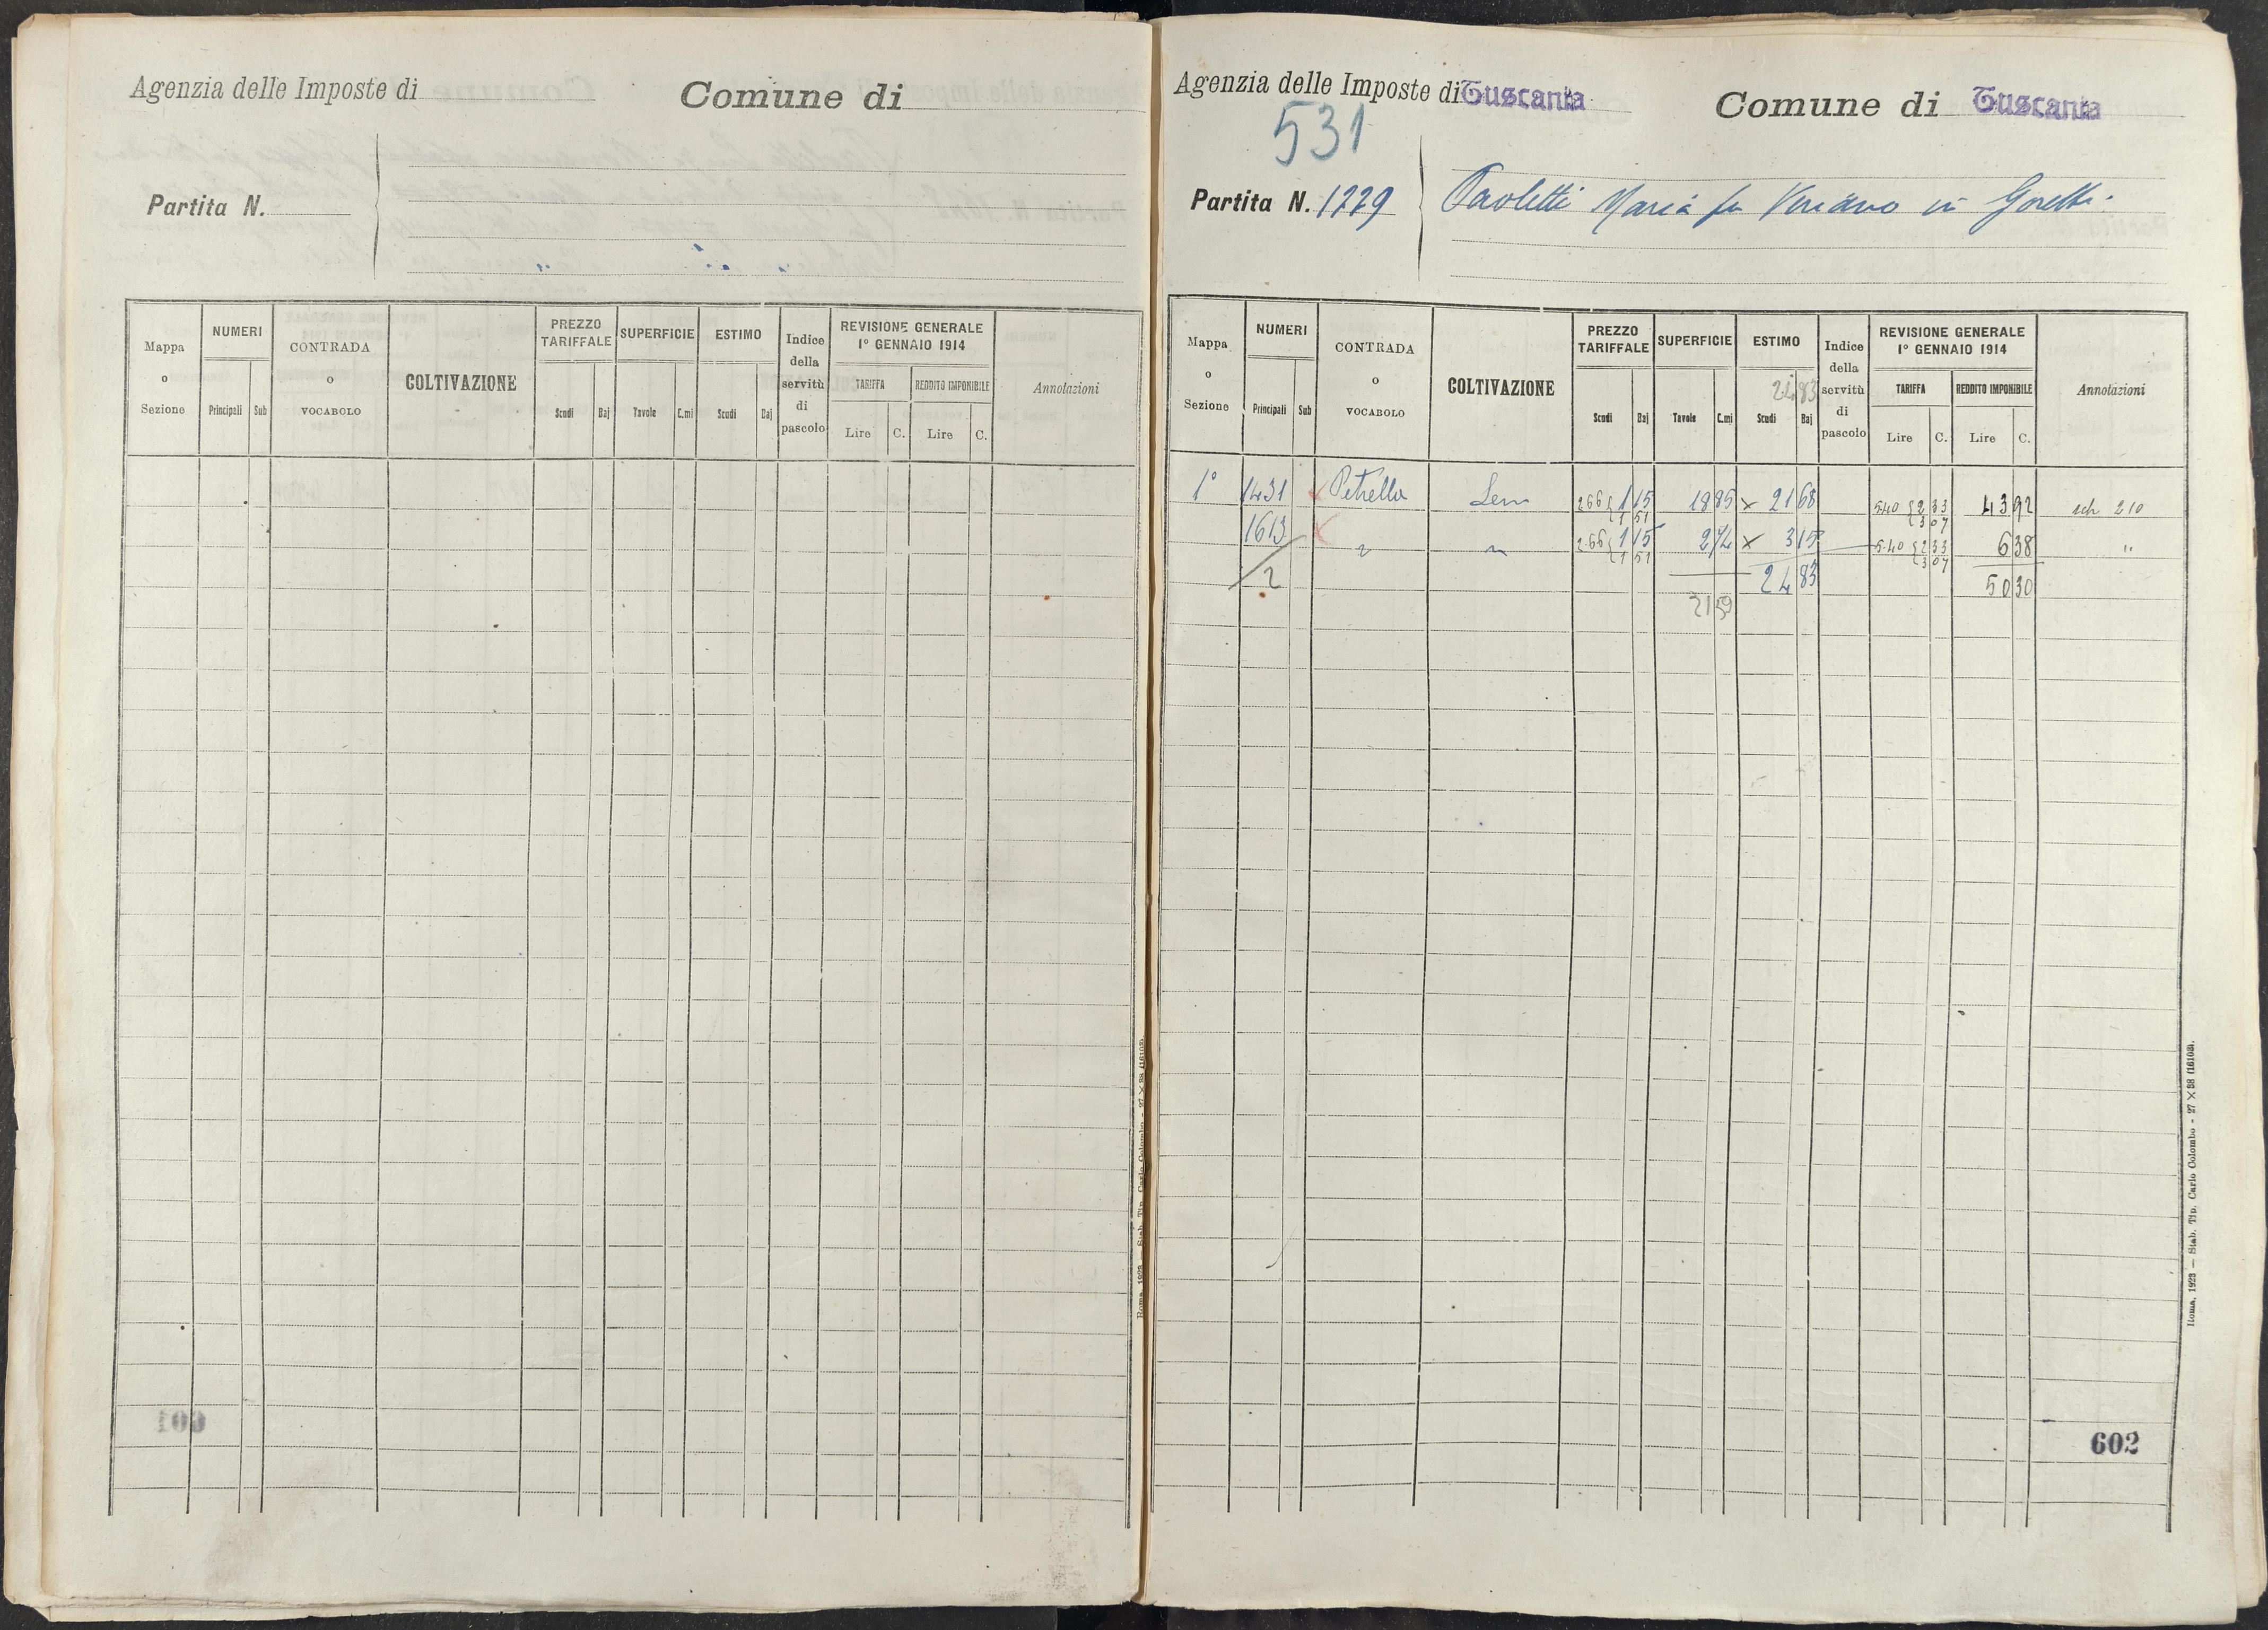 Agenzia delle Imposte di
Comune di
Partita N.
Mappa o Sezione
NUMERI
Principali Sub
CONTRADA o VOCABOLO
COLTIVAZIONE
PREZZO TARIFFALE
Scudi Baj
SUPERFICIE
Tavole C.mi
ESTIMO
Scudi Baj
Indice della servitù di pascolo
REVISIONE GENERALE 1° GENNAIO 1914
TARIFFA
Lire C.
REDDITO IMPONIBILE
Lire C.
Annotazioni
601
Roma, 1923 — Stab. Tip. Carlo Colombo - 27 × 38 (16103).
Agenzia delle Imposte di Tuscania
Comune di Tuscania
531
Partita N. 1229
Paoletti Maria fu Veriano in Goretti.
Mappa o Sezione
NUMERI
Principali Sub
CONTRADA o VOCABOLO
COLTIVAZIONE
PREZZO TARIFFALE
Scudi Baj
SUPERFICIE
Tavole C.mi
ESTIMO
24 83
Scudi Baj
Indice della servitù di pascolo
REVISIONE GENERALE 1° GENNAIO 1914
TARIFFA
Lire C.
REDDITO IMPONIBILE
Lire C.
Annotazioni
1° 1431 Petrella Sem 266 { 1 15 18 85 × 21 68 540 { 2 33 43 92 sch 210
1 51 3 07
1613 " " 2.66 { 1 15 2 74 × 3 15 5.40 { 2 33 6 38 "
1 51 3 07
2 24 83 50 30
21 59
602
Roma, 1923 — Stab. Tip. Carlo Colombo - 27 × 38 (16103).